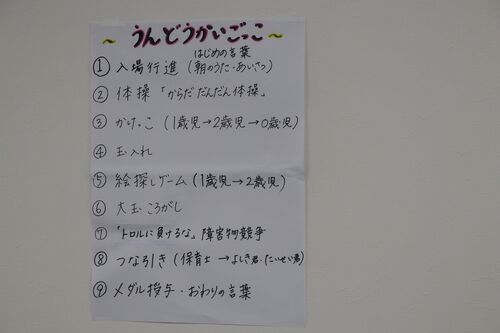 ～うんどうかいごっこ～
はじめの言葉
① 入場行進（朝のうた・あいさつ）
② 体操「からだだんだん体操」
③ かけっこ（1歳児→2歳児→0歳児）
④ 玉入れ
⑤ 絵探しゲーム（1歳児→2歳児）
⑥ 大玉ころがし
⑦「トロルに負けるな」障害物競争
⑧ つな引き（保育士→よしき君・たいせい君）
⑨ メダル授与・おわりの言葉